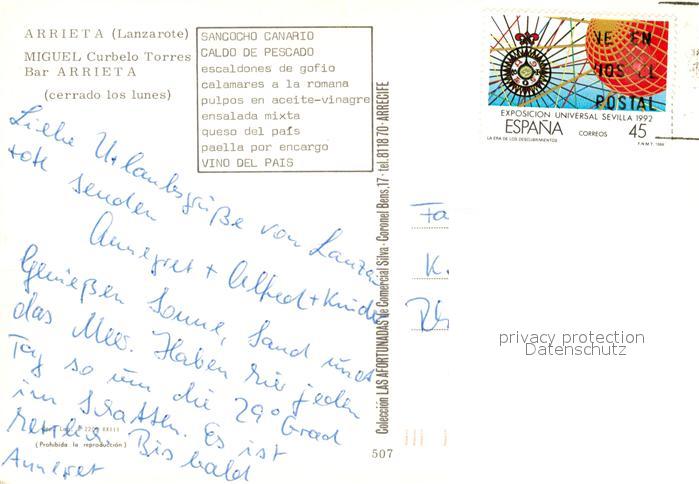 ARRIETA (Lanzarote)
MIGUEL Curbelo Torres
Bar ARRIETA
(cerrado los lunes)
SANCOCHO CANARIO
CALDO DE PESCADO
escaldones de gofio
calamares a la romana
pulpos en aceite-vinagre
ensalada mixta
queso del país
paella por encargo
VINO DEL PAIS
Liebe Urlaubsgrüße von Lanza-
rote senden
Annegret + Alfred + Kinder
Genießen Sonne, Sand und
das Meer. Haben hier jeden
Tag so um die 29° Grad
im Schatten. Es ist
herrlich. Bis bald
Annegret
(Prohibida la reproducción)
507
Colección LAS AFORTUNADAS de Comercial Silva - Coronel Bens, 17 - tel. 81 18 70 - ARRECIFE
Fa
K.
VE EN
POSTAL
EXPOSICION UNIVERSAL SEVILLA 1992
ESPAÑA CORREOS 45
LA ERA DE LOS DESCUBRIMIENTOS
privacy protection
Datenschutz